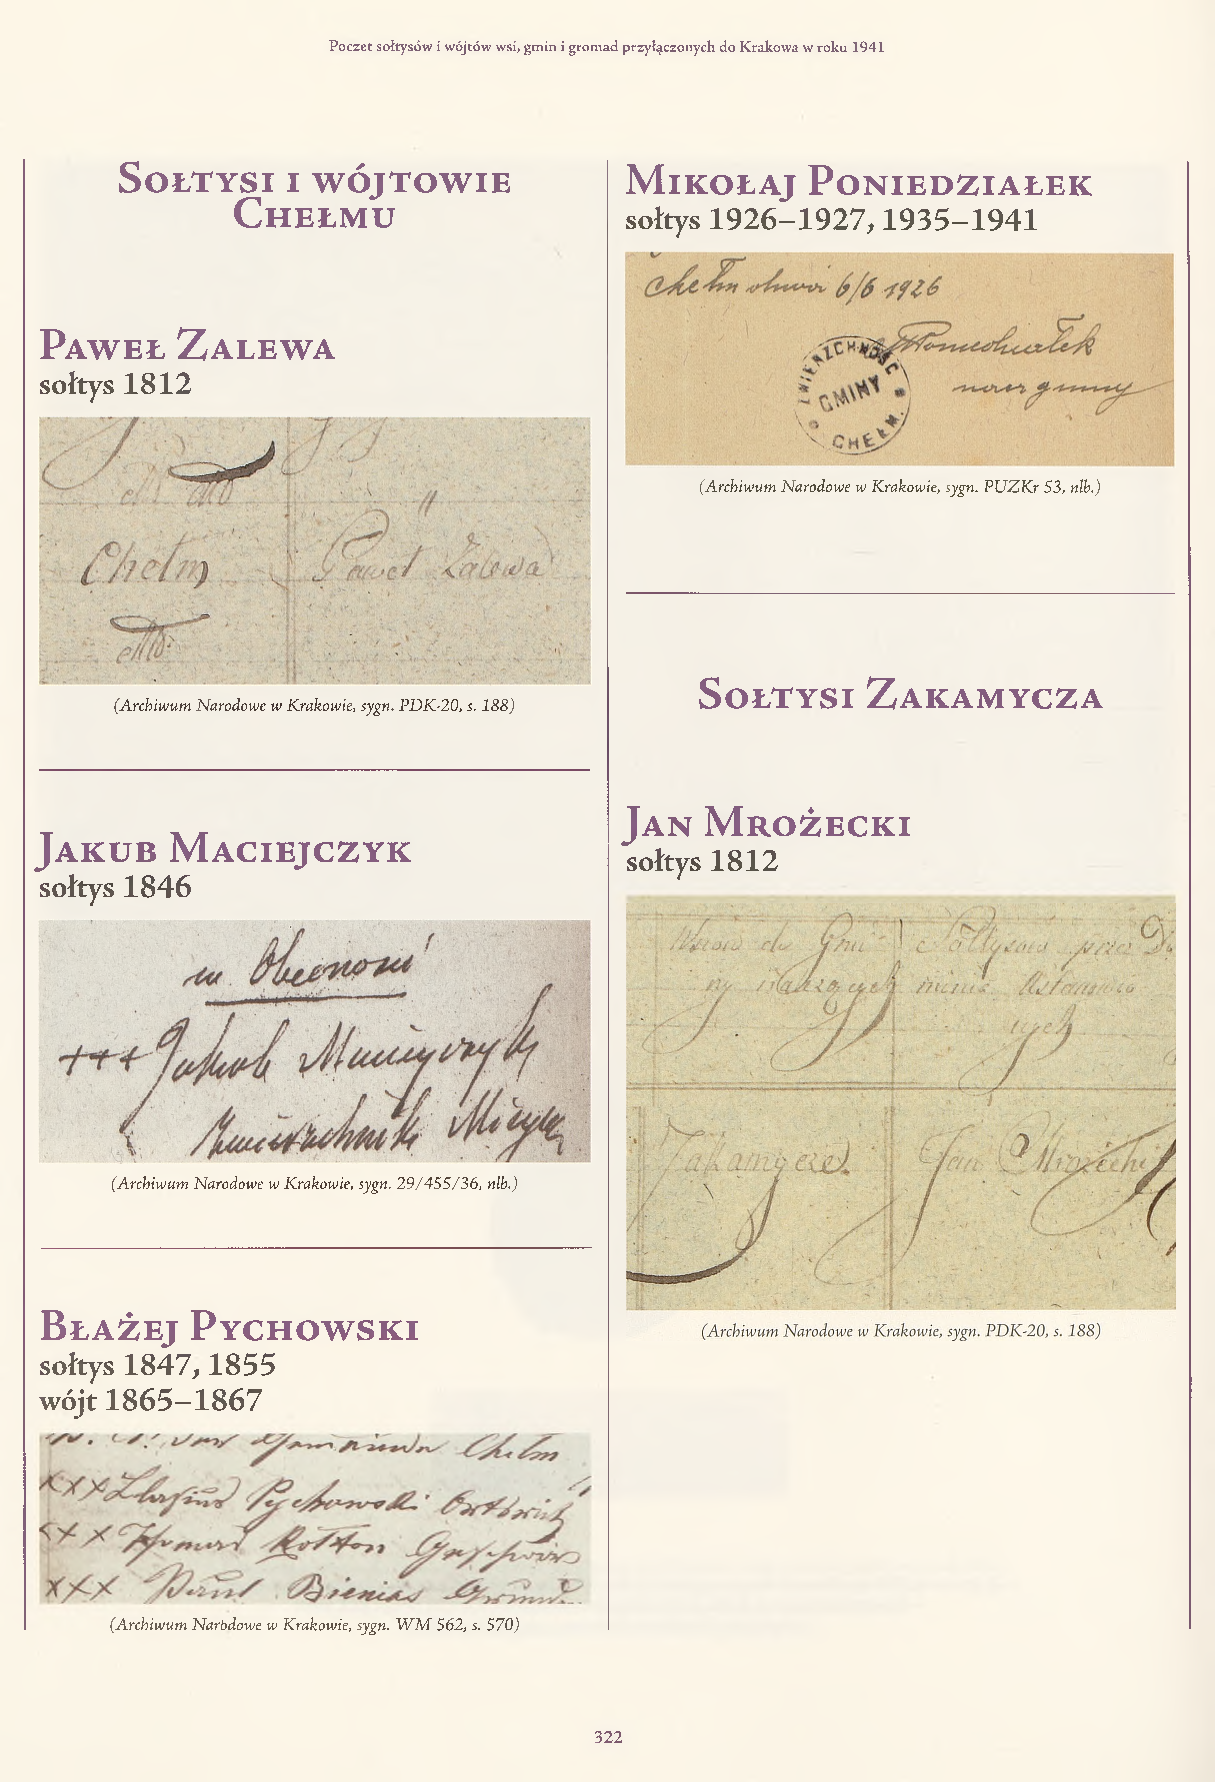 Poczet sołtysów i wójtów wsi, gmin i gromad przyłączonych do Krakowa w roku 1941
Sołtysi i wójtowie
Chełmu
Paweł Zalewa
sołtys 1812
Chełm Paweł Zalewa
(Archiwum Narodowe w Krakowie, sygn. PDK-20, s. 188)
Jakub Maciejczyk
sołtys 1846
w Obecności
+++ Jakob Maciyczyk
Zwierzchnik Mieysc
(Archiwum Narodowe w Krakowie, sygn. 29/455/36, nlb.)
Błażej Pychowski
sołtys 1847, 1855
wójt 1865–1867
Chełm
xxx Blasius Pychowski Ortsrich
xxx Thomas Kołton Geschwor
xxx Paul Bienias
(Archiwum Narodowe w Krakowie, sygn. WM 562, s. 570)
Mikołaj Poniedziałek
sołtys 1926–1927, 1935–1941
Chełm 6/6 1926
Poniedziałek
ZWIERZCHNOŚĆ
GMINY
CHEŁM.
gminy
(Archiwum Narodowe w Krakowie, sygn. PUZKr 53, nlb.)
Sołtysi Zakamycza
Jan Mrożecki
sołtys 1812
do Gmi Sołtysów przez Do
ny należących
nych
Zakamycze. Jan Mrożecki
(Archiwum Narodowe w Krakowie, sygn. PDK-20, s. 188)
322